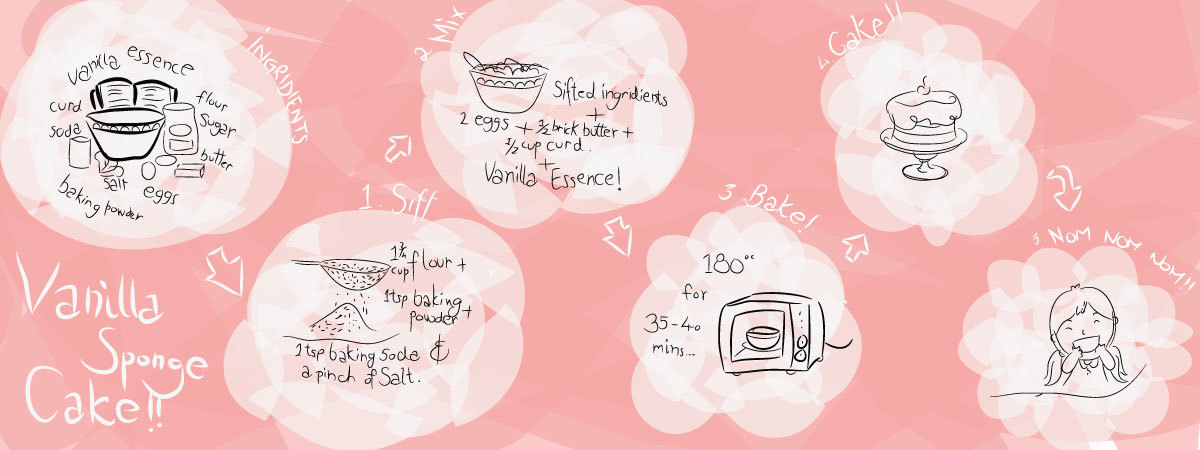 Vanilla
Sponge
Cake!!
INGRIDIENTS
Vanilla essence
curd
soda
flour
Sugar
butter
salt
eggs
baking powder
1. Sift
1 3/4 cup flour +
1tsp baking +
powder
1tsp baking soda &
a pinch of Salt.
2 Mix
Sifted ingridients
+
2 eggs + 1/2 brick butter +
1/2 cup curd.
+
Vanilla Essence!
3. Bake!
180°c
for
35-40
mins...
4. Cake!!
5 NOM NOM
NOM!!